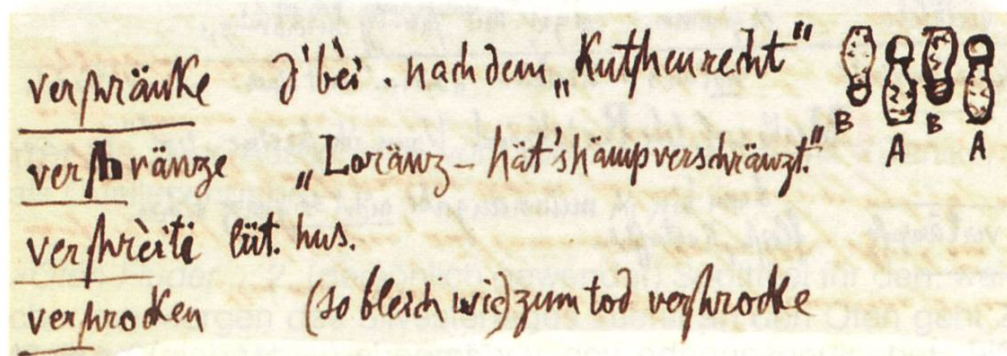 verschränke d'bèi. nach dem „Kutschenrecht"
B B
A A
verschränze „Loränz – hät's hämp verschränzt."
verschrèiti lüt. hus.
verschrocken (so bleich wie) zum tod verschrocke